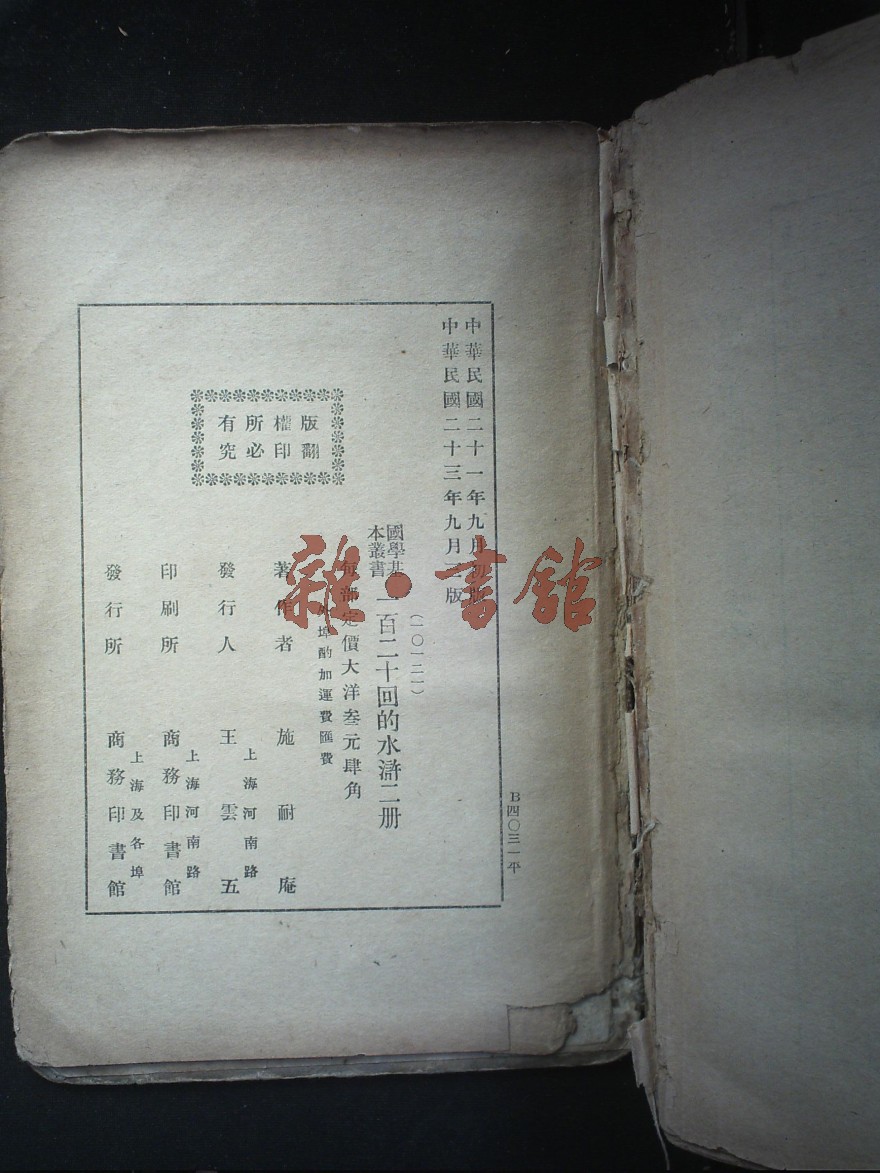 中華民國二十一年九月初版
中華民國二十三年九月 版
B四〇三一平
(一〇一二一)
國學基本叢書
一百二十回的水滸二册
每部定價大洋叁元肆角
外埠酌加運費匯費
著作者 施耐庵
發行人 王雲五
上海河南路
印刷所 商務印書館
上海河南路
發行所 商務印書館
上海及各埠
版權所有
翻印必究
雜·書館